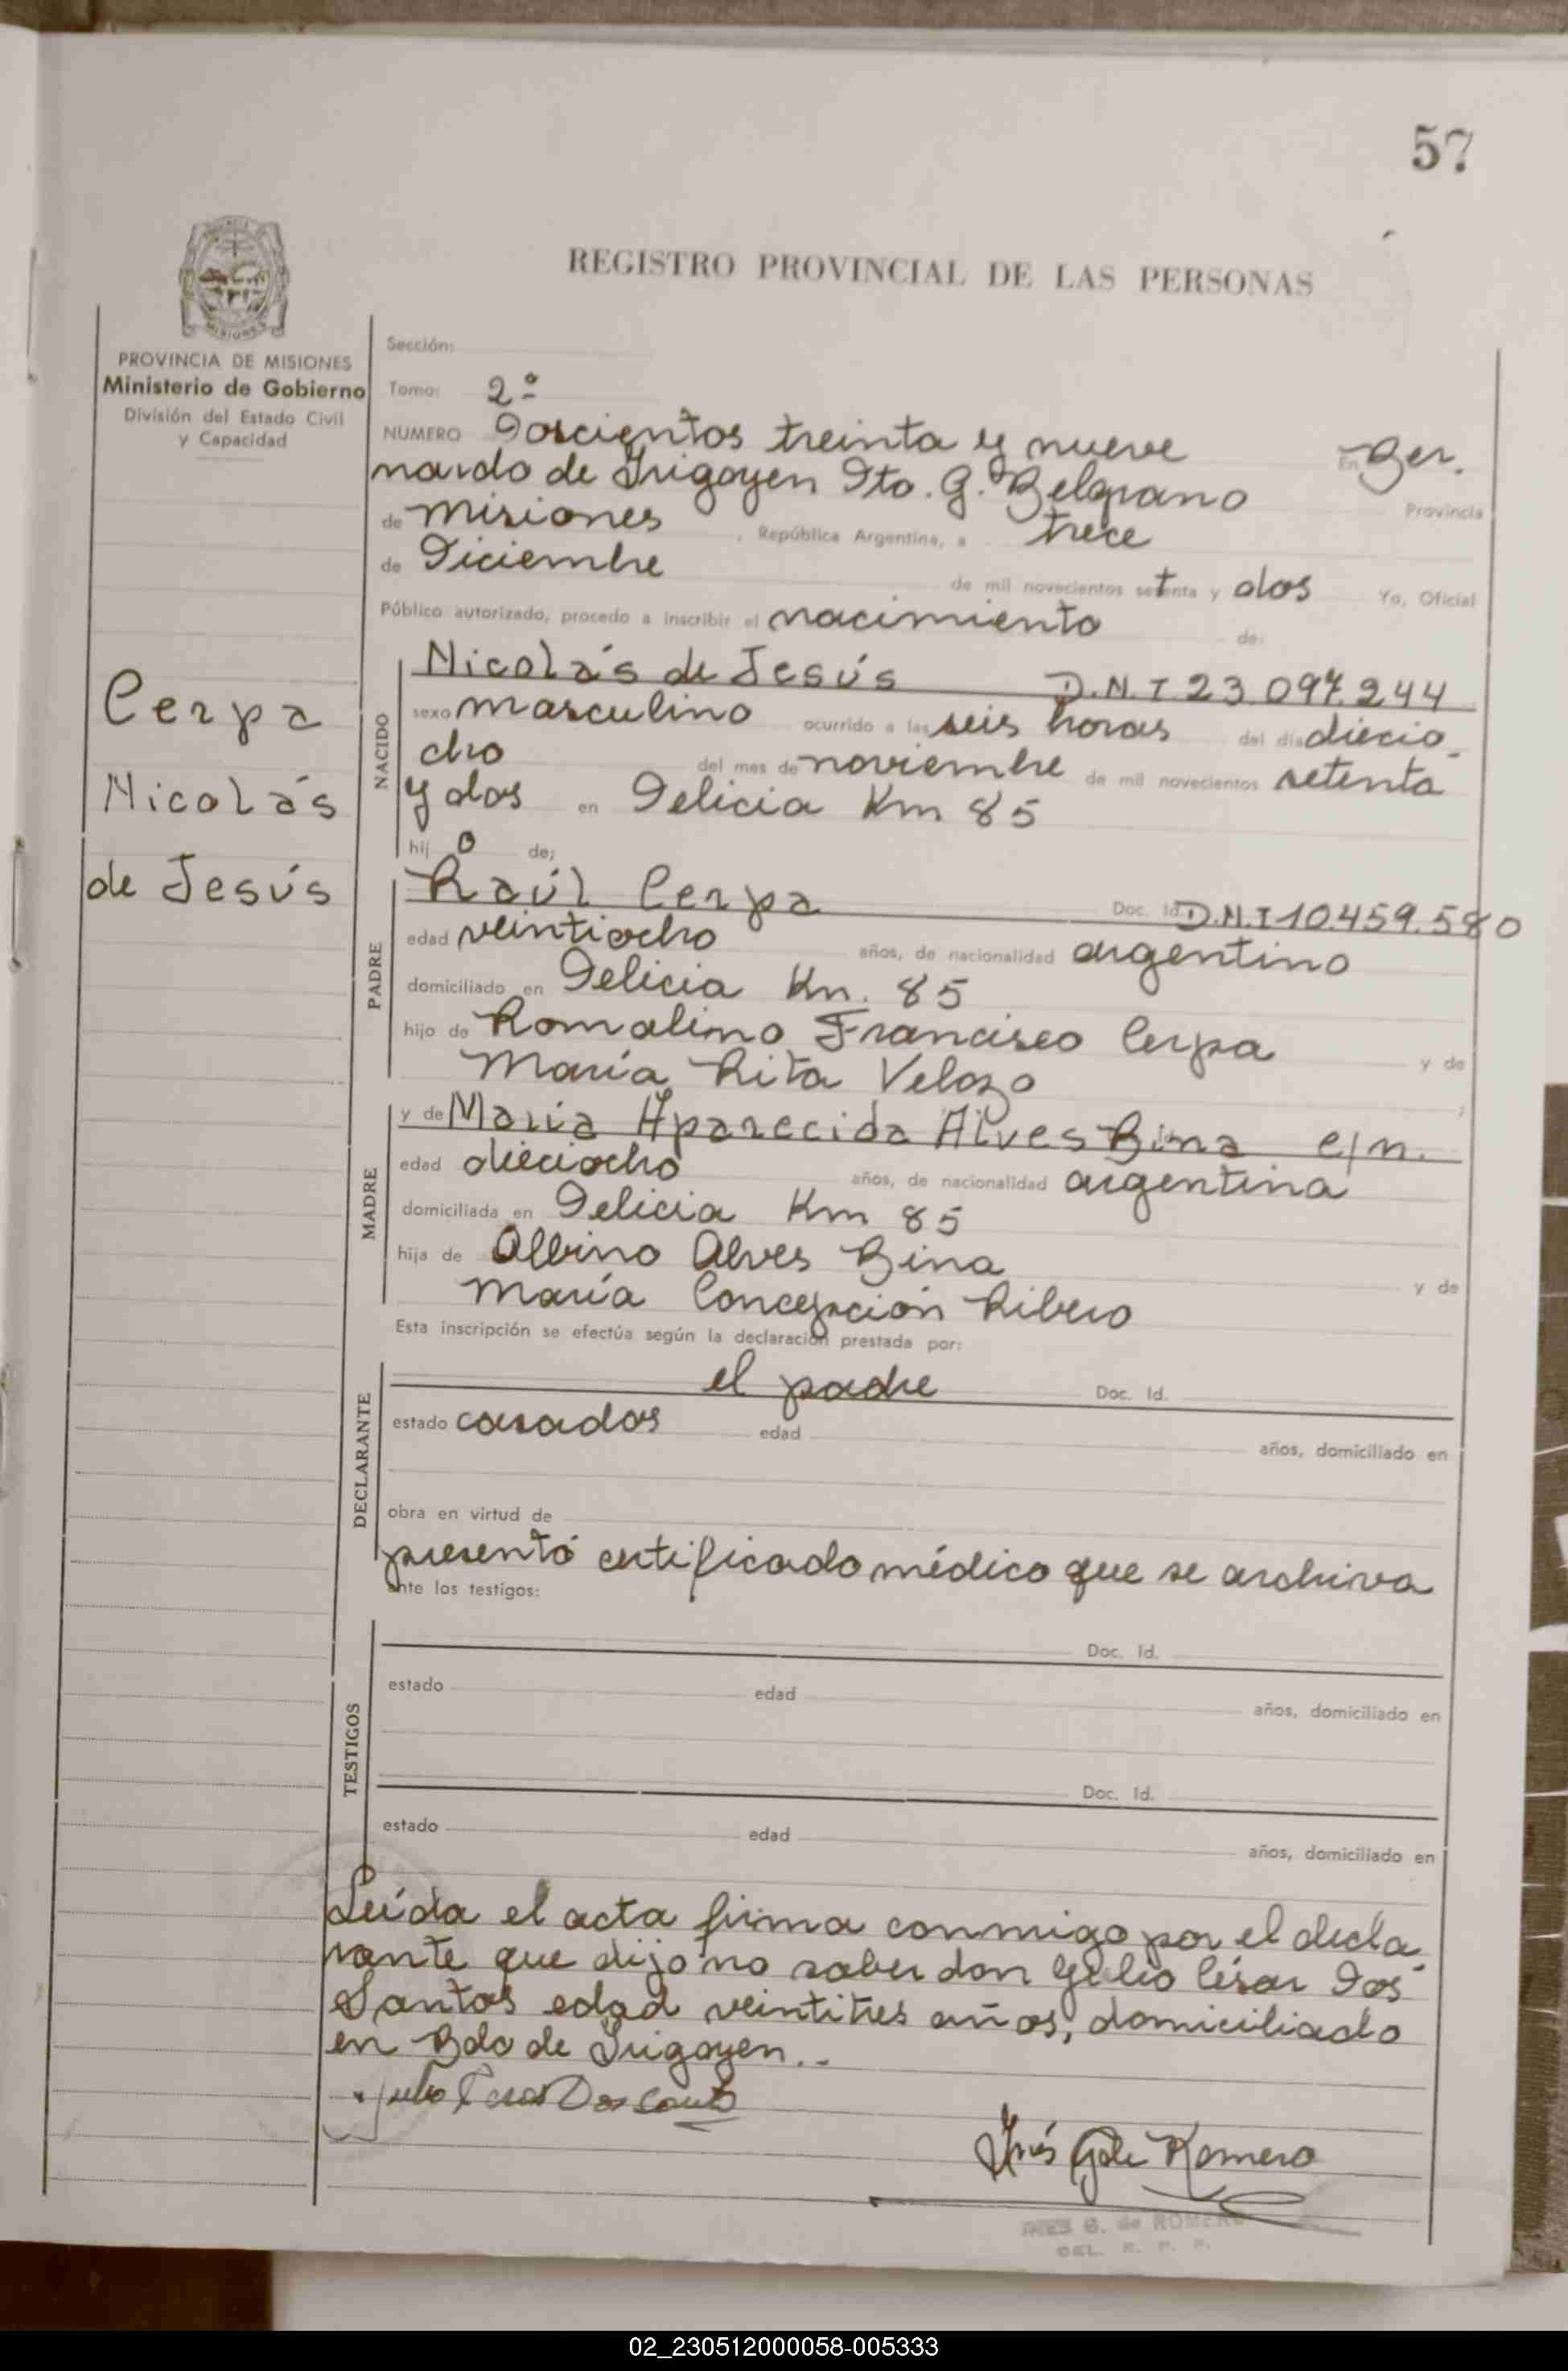 57
REGISTRO PROVINCIAL DE LAS PERSONAS
PROVINCIA DE MISIONES
Ministerio de Gobierno
División del Estado Civil
y Capacidad
Cerpa
Nicolás
de Jesús
Sección:
Tomo: 2º
NUMERO Doscientos treinta y nueve En Ber.
nardo de Irigoyen Dto. G. Belgrano Provincia
de Misiones, República Argentina, a trece
de Diciembre de mil novecientos setenta y dos Yo, Oficial
Público autorizado, procedo a inscribir el nacimiento de:
NACIDO
Nicolás de Jesús D.N.I 23.097.244
sexo masculino ocurrido a las seis horas del día diecio
cho del mes de noviembre de mil novecientos setenta
y dos en Delicia Km 85
hij o de;
PADRE
Raúl Cerpa Doc. Id. D.N.I 10.459.580
edad veintiocho años, de nacionalidad argentino
domiciliado en Delicia Km. 85
hijo de Romalino Francisco Cerpa y de
María Rita Velozo ;
MADRE
y de María Aparecida Alves Bina c/n.
edad dieciocho años, de nacionalidad argentina
domiciliada en Delicia Km 85
hija de Albino Alves Bina y de
María Concepción Ribero
Esta inscripción se efectúa según la declaración prestada por:
DECLARANTE
el padre Doc. Id.
estado casados edad años, domiciliado en
obra en virtud de
presentó certificado médico que se archiva
ante los testigos:
TESTIGOS
Doc. Id.
estado edad años, domiciliado en
Doc. Id.
estado edad años, domiciliado en
Leída el acta firma conmigo por el decla
rante que dijo no saber don Julio César Dos
Santos edad veintitres años, domiciliado
en Bdo de Irigoyen..
Julio Cesar Dos Santos
Inés G de Romero
INES G. de ROMERO
DEL. R. P. P.
02_230512000058-005333